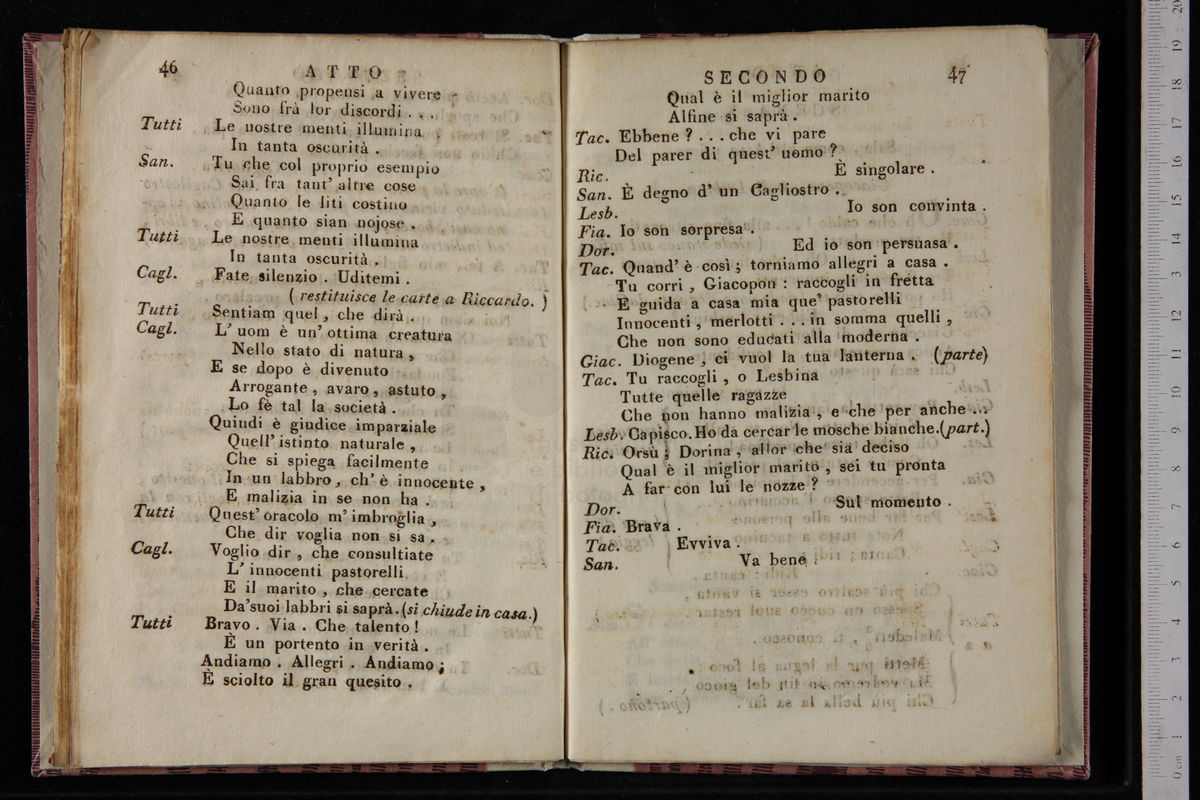 46 ATTO
Quanto propensi a vivere
Sono frà lor discordi . . .
Tutti Le nostre menti illumina
In tanta oscurità .
San. Tu che col proprio esempio
Sai fra tant' altre cose
Quanto le liti costino
E quanto sian nojose .
Tutti Le nostre menti illumina
In tanta oscurità .
Cagl. Fate silenzio . Uditemi .
( restituisce le carte a Riccardo. )
Tutti Sentiam quel, che dirà .
Cagl. L' uom è un' ottima creatura
Nello stato di natura ,
E se dopo è divenuto
Arrogante , avaro , astuto ,
Lo fè tal la società .
Quindi è giudice imparziale
Quell' istinto naturale ,
Che si spiega facilmente
In un labbro , ch' è innocente ,
E malizia in se non ha .
Tutti Quest' oracolo m' imbroglia ,
Che dir voglia non si sa .
Cagl. Voglio dir , che consultiate
L' innocenti pastorelli
E il marito , che cercate
Da'suoi labbri si saprà. (si chiude in casa.)
Tutti Bravo . Via . Che talento !
È un portento in verità .
Andiamo . Allegri . Andiamo ;
È sciolto il gran quesito .
SECONDO 47
Qual è il miglior marito
Alfine si saprà .
Tac. Ebbene ? . . . che vi pare
Del parer di quest' uomo ?
Ric. È singolare .
San. È degno d' un Cagliostro .
Lesb. Io son convinta .
Fia. Io son sorpresa .
Dor. Ed io son persuasa .
Tac. Quand' è così ; torniamo allegri a casa .
Tu corri , Giacopon : raccogli in fretta
E guida a casa mia que' pastorelli
Innocenti , merlotti . . . in somma quelli ,
Che non sono educati alla moderna .
Giac. Diogene , ci vuol la tua lanterna . (parte)
Tac. Tu raccogli , o Lesbina
Tutte quelle ragazze
Che non hanno malizia , e che per anche ...
Lesb. Capisco. Ho da cercar le mosche bianche. (part.)
Ric. Orsù ; Dorina , allor che sia deciso
Qual è il miglior marito , sei tu pronta
A far con lui le nozze ?
Dor. Sul momento .
Fia. Brava .
Tac. Evviva .
San. Va bene